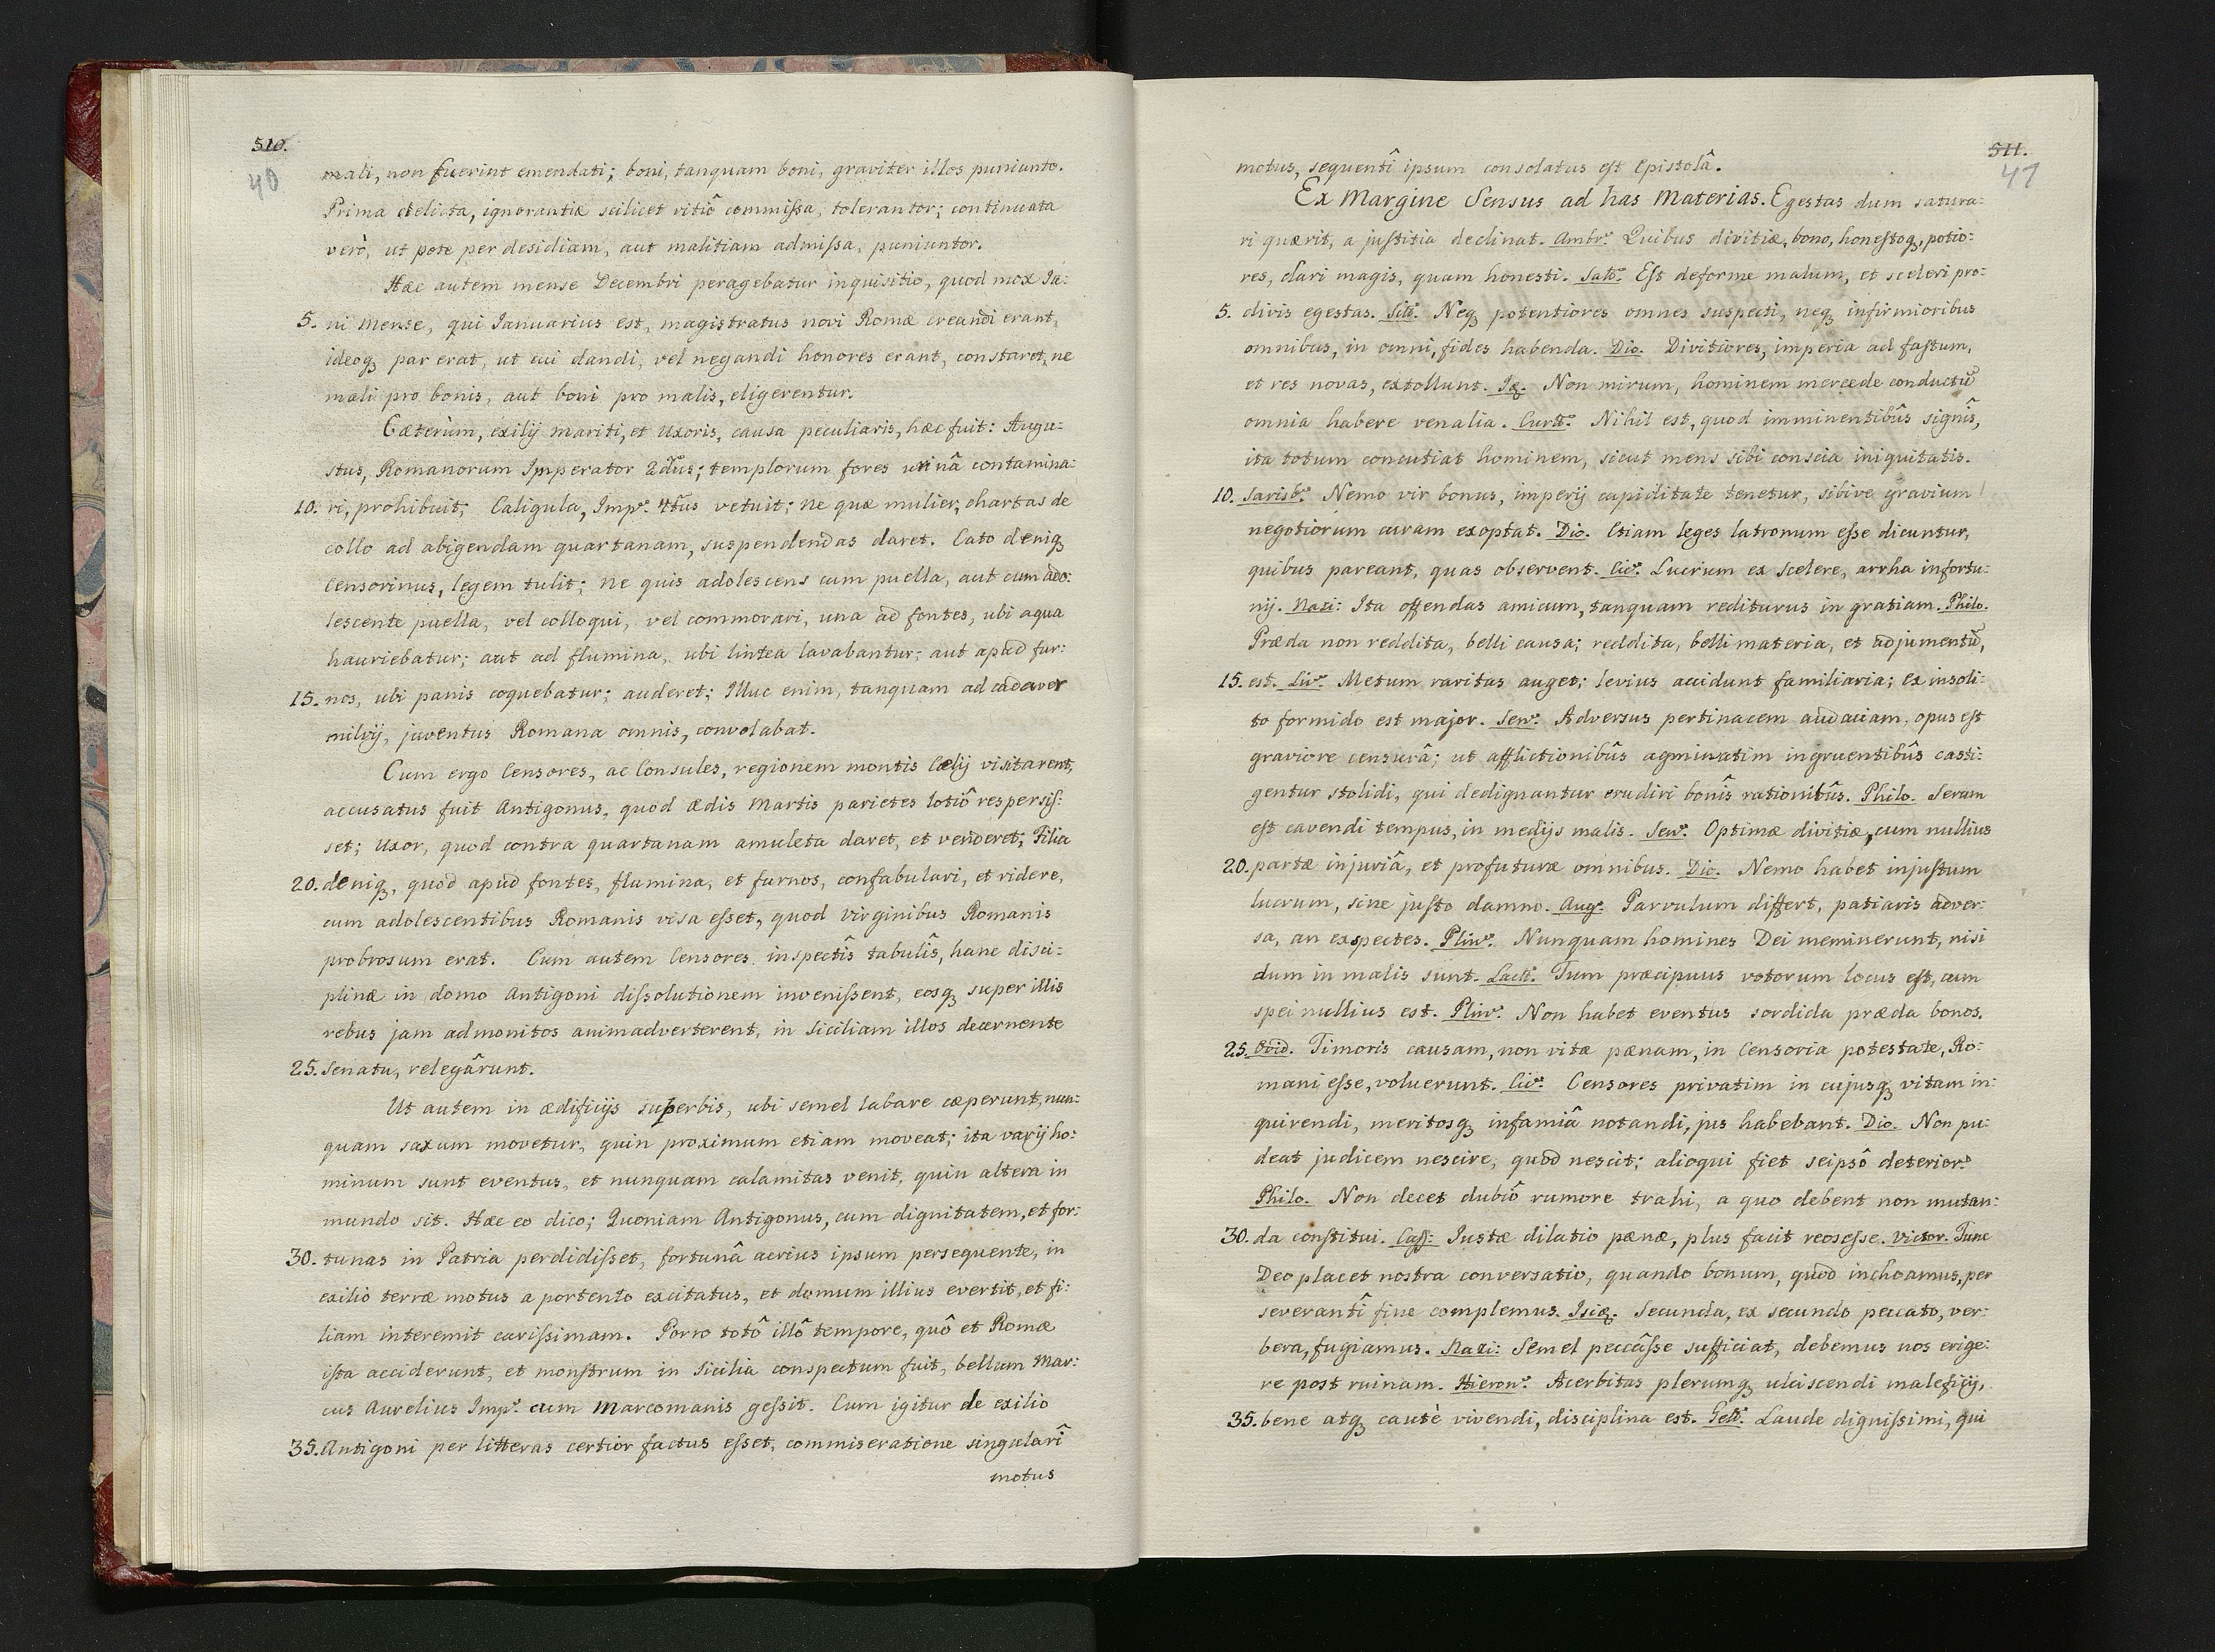 510.
40
mali, non fuerint emendati; boni, tanquam boni, graviter illos puniunto.
Prima delicta, ignorantiæ scilicet vitiô commissa, tolerantor; continuata
verò, ut pote per desidiam, aut malitiam admissa, puniuntor.
Hæc autem mense Decembri peragebatur inquisitio, quod mox Ja:
5. ni mense, qui Januarius est, magistratus novi Romæ creandi erant,
ideoq3 par erat, ut cui dandi, vel negandi honores erant, constaret, ne
mali pro bonis, aut boni pro malis, eligerentur.
Cæterùm, exilij mariti, et Uxoris, causa peculiaris, hæc fuit: Augu-
stus, Romanorum Imperator 2dus; templorum fores urinâ contamina:
10. ri, prohibuit; Caligula, Impr. 4tus vetuit; ne quæ mulier, chartas de
collo ad abigendam quartanam, suspendendas daret. Cato deniq3
Censorinus, legem tulit; ne quis adolescens cum puella, aut cum ado:
lescente puella, vel colloqui, vel commorari, una ad fontes, ubi aqua
hauriebatur; aut ad flumina, ubi lintea lavabantur; aut apud fur:
15. nos, ubi panis coquebatur; auderet; Illuc enim, tanquam ad cadaver
milvij, juventus Romana omnis, convolabat.
Cum ergo Censores, ac Consules, regionem montis Cælij visitarent,
accusatus fuit Antigonus, quod ædis Martis parietes lotiô respersis:
set; Uxor, quod contra quartanam amuleta daret, et venderet; Filia
20. deniq3, quod apud fontes, flumina, et furnos, confabulari, et ridere,
cum adolescentibus Romanis visa esset, quod Virginibus Romanis
probrosum erat. Cum autem Censores inspectîs tabulîs, hanc disci-
plinæ in domo Antigoni dissolutionem invenissent, eosq3 super illis
rebus jam admonitos animadverterent, in Siciliam illos decernente
25. Senatu, relegârunt.
Ut autem in ædificijs superbis, ubi semel labare cæperunt, nun:
quam saxum movetur, quin proximum etiam moveat; ita varij ho:
minum sunt eventus, et nunquam calamitas venit, quin altera in
mundo sit. Hæc eo dico; Quoniam Antigonus, cum dignitatem, et for:
30. tunas in Patria perdidisset, fortunâ acrius ipsum persequente, in
exilio terræ motus a portento excitatus, et domum illius evertit, et fi:
liam interemit carissimam. Porro totô illô tempore, quô et Romæ
ista acciderunt, et monstrum in Sicilia conspectum fuit, bellum Mar:
cus Aurelius Impr. cum Marcomanis gessit. Cum igitur de exilio
35. Antigoni per litteras certior factus esset, commiseratione singularî
motus
511.
41
motus, sequentî ipsum consolatus est Epistolâ.
Ex Margine Sensus ad has Materias. Egestas dum satura:
ri quærit, a justitia declinat. Ambr. Quibus divitiæ, bono, honestoq3, potio:
res, clari magis, quam honesti. Sall. Est deforme malum, et sceleri pro:
5. clivis egestas. Neq3 potentiores omnes suspecti, neq3 infirmioribus
omnibus, in omni, fides habenda. Dio. Divitiores, imperia ad fastum,
et res novas, extollunt. Non mirum, hominem mercede conductũ
omnia habere venalia. Curt. Nihil est, quod imminentibûs signîs,
ita totum concutiat hominem, sicut mens sibi conscia iniquitatis.
10. Sarisb. Nemo vir bonus, imperij cupiditate tenetur, sibive gravium
negotiorum curam exoptat. Dio. Etiam leges latronum esse dicuntur,
quibus pareant, quas observent. Cic. Lucrum ex scelere, arrha infortu:
nij. Nazi: Ita offendas amicum, tanquam rediturus in gratiam. Philo.
Præda non reddita, belli causa; reddita, belli materia, et adjumentũ,
15. est. Liv. Metum raritas auget; levius accidunt familiaria; ex insoli:
to formido est major. Sen. Adversus pertinacem audaciam, opus est
graviore censurâ; ut afflictionibûs agminatim ingruentibûs casti:
gentur stolidi, qui dedignantur erudiri bonîs rationibûs. Philo. Serum
est cavendi tempus, in medijs malis. Sen. Optimæ divitiæ, cum nullius
20. partæ injuriâ, et profuturæ omnibus. Dio. Nemo habet injustum
lucrum, sine justo damno. Aug. Parvulum differt, patiaris adver:
sa, an exspectes. Plin. Nunquam homines Dei meminerunt, nisi
dum in malis sunt. Lact. Tum præcipuus votorum locus est, cum
spei nullius est. Plin. Non habet eventus sordida præda bonos.
25. Ovid. Timoris causam, non vitæ pænam, in Censoria potestate, Ro:
mani esse, voluerunt. Cic. Censores privatim in cujusq3 vitam in:
quirendi, meritosq3 infamiâ notandi, jus habebant. Dio. Non pu:
deat judicem nescire, quod nescit; alioqui fiet seipsô deterior.
Philo. Non decet dubiô rumore trahi, a quo debent non mutan:
30. da constitui. Cass: Justæ dilatio pænæ, plus facit reos esse. Victor. Tunc
Deo placet nostra conversatio, quando bonum, quod inchoamus, per
severantî fine complemus. Secunda, ex secundo peccato, ver:
bera, fugiamus. Nazi: Semel peccâsse sufficiat, debemus nos erige:
re post ruinam. Hieron. Acerbitas plerumq3 ulciscendi maleficij,
35. bene atq3 cautè vivendi, disciplina est. Gell. Laude dignissimi, qui